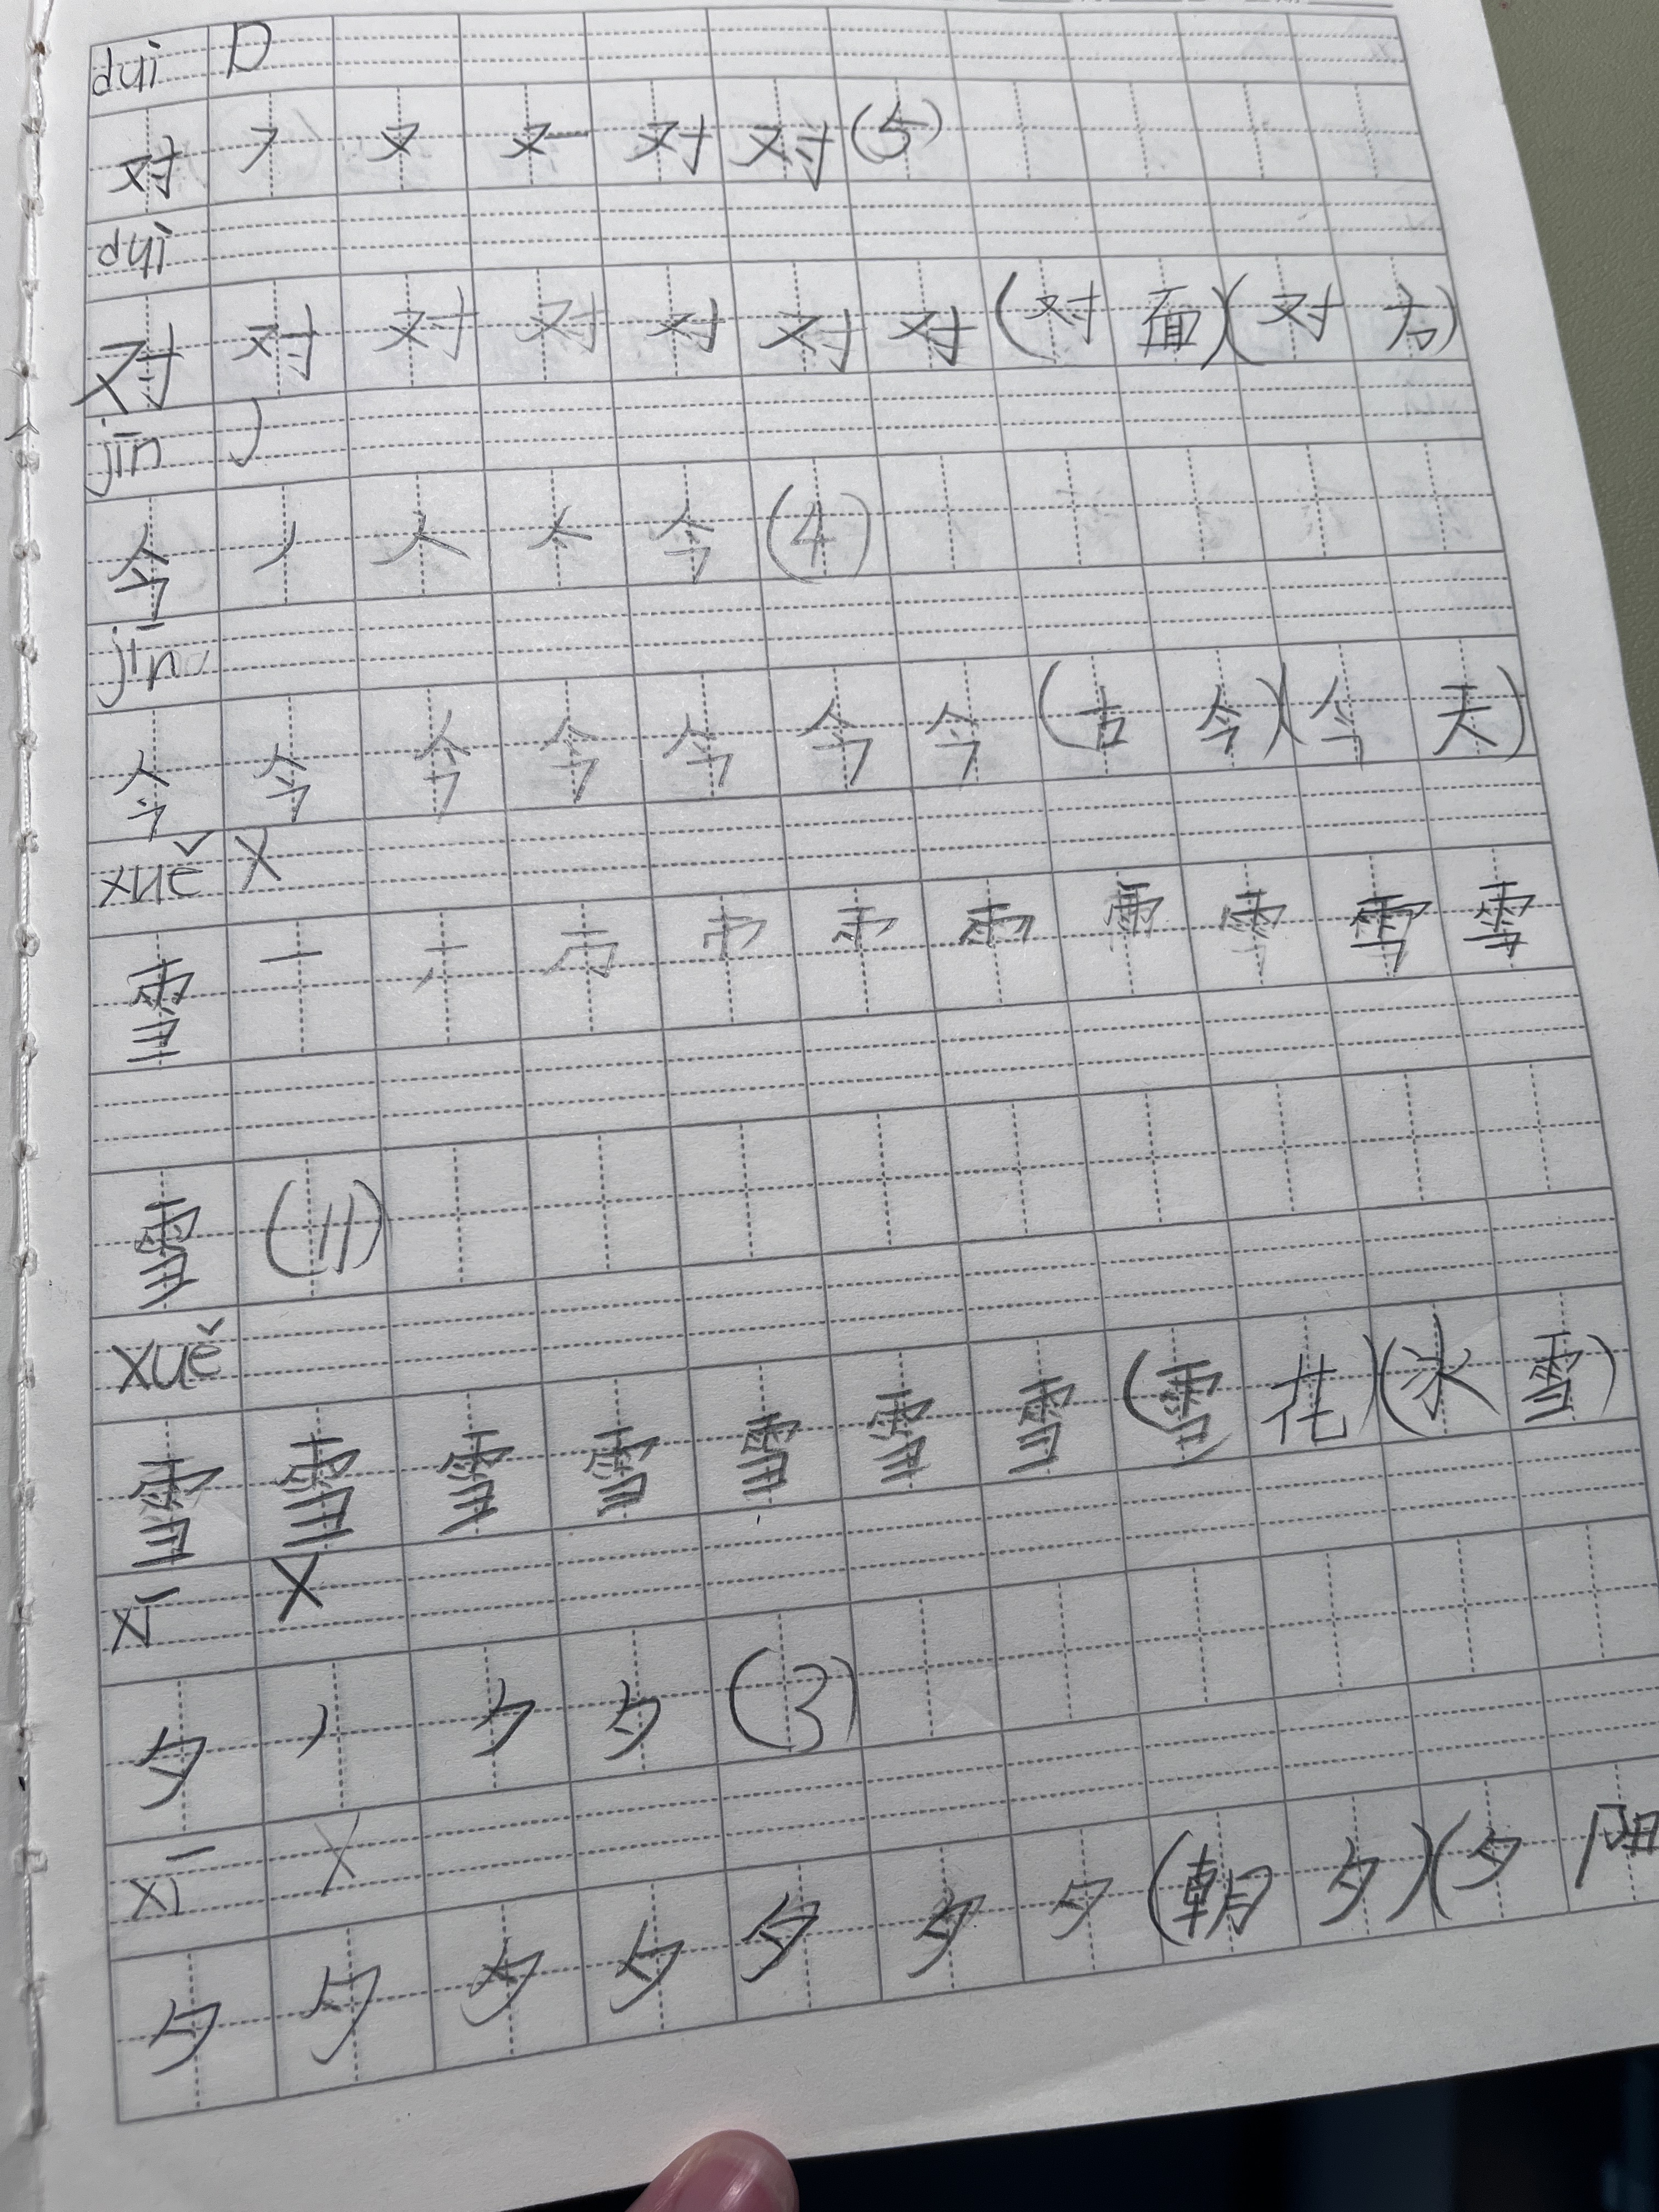 duì D
对 フ 又 对 对 (5)
duì
对 对 对 对 对 对 对 (对面)(对方)
jīn J
今 丿 人 今 (4)
jīn
今 今 今 今 今 今 今 (古今)(今天)
xuě X
雪 一 雪
雪 (11)
xuě
雪 雪 雪 雪 雪 雪 雪 (雪花)(冰雪)
xī X
夕 丿 ク 夕 (3)
xī X
夕 夕 夕 夕 夕 夕 夕 (朝夕)(夕阳